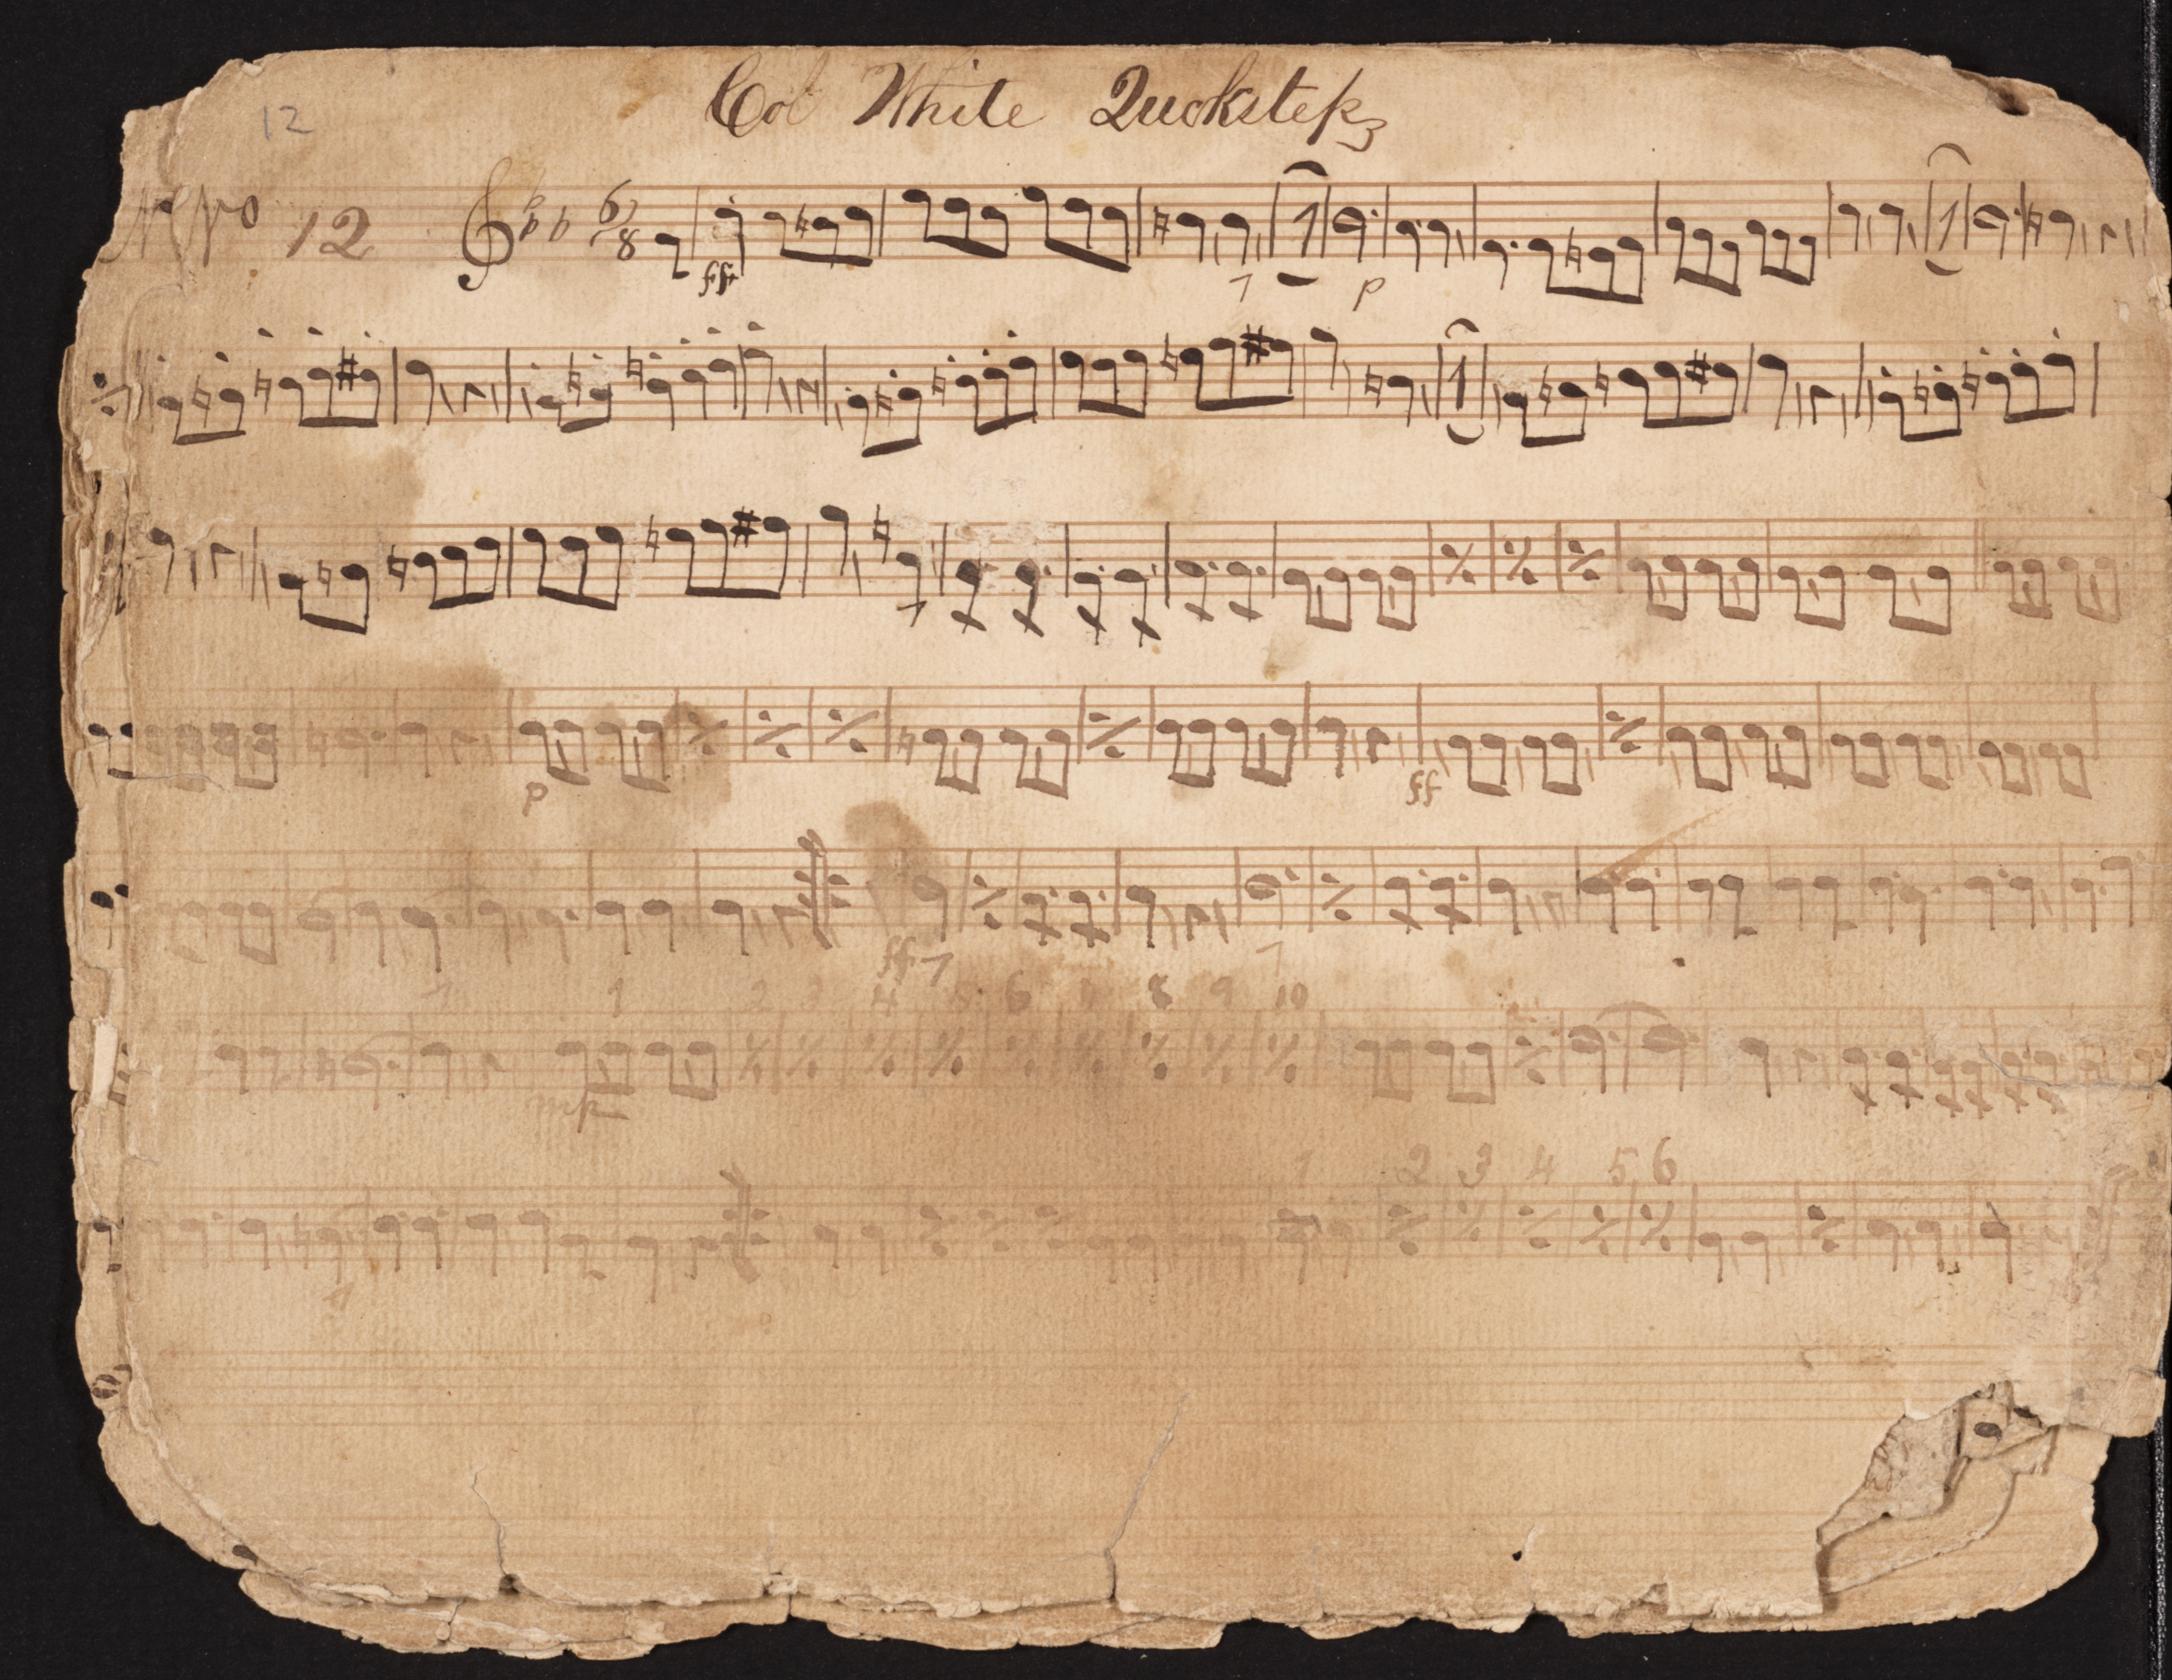 Col White Quckstep
12
No 12 6/8
ff
1 1
p
p ff
ff
1 2 4 6 8 9 10
mp
1 2 3 4 5 6